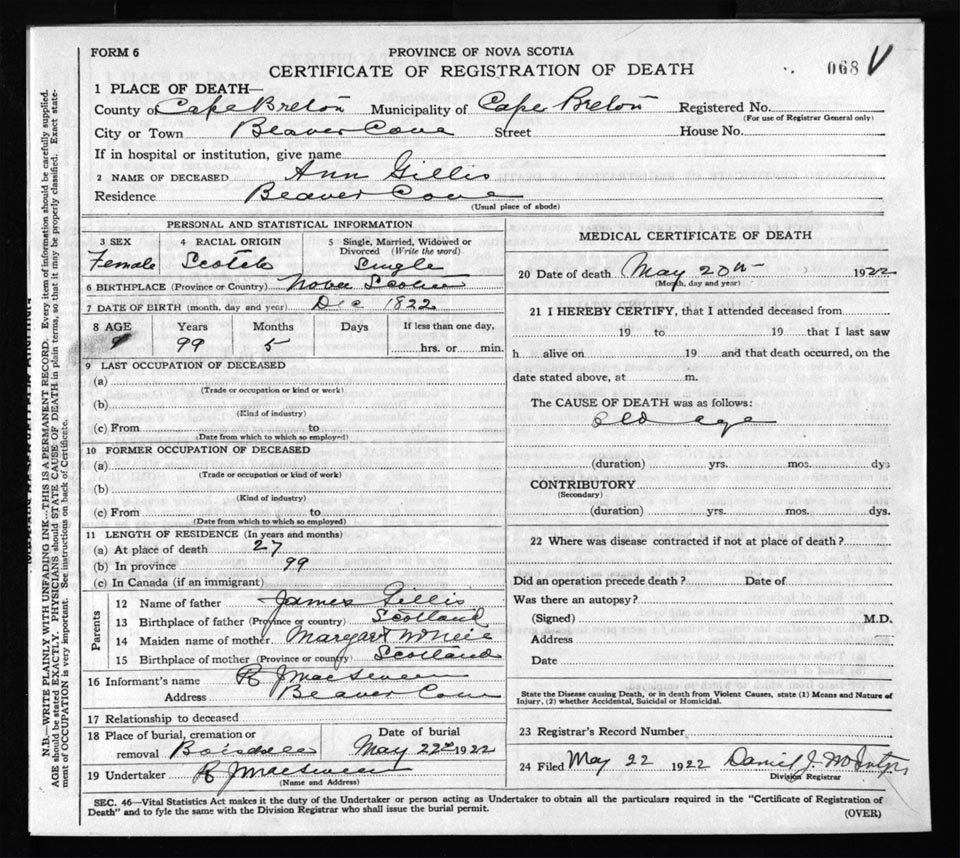 FORM 6
PROVINCE OF NOVA SCOTIA
CERTIFICATE OF REGISTRATION OF DEATH
068 V
1 PLACE OF DEATH—
County of Cape Breton Municipality of Cape Breton Registered No.
(For use of Registrar General only)
City or Town Beaver Cove Street House No.
If in hospital or institution, give name
2 NAME OF DECEASED Ann Gillis
Residence Beaver Cove
(Usual place of abode)
PERSONAL AND STATISTICAL INFORMATION
3 SEX 4 RACIAL ORIGIN 5 Single, Married, Widowed or Divorced (Write the word)
Female Scotch Single
6 BIRTHPLACE (Province or Country) Nova Scotia
7 DATE OF BIRTH (month, day and year) Dec 1822
8 AGE Years Months Days If less than one day,
99 5 hrs. or min.
9 LAST OCCUPATION OF DECEASED
(a)
(Trade or occupation or kind or work)
(b)
(Kind of industry)
(c) From to
(Date from which to which so employed)
10 FORMER OCCUPATION OF DECEASED
(a)
(Trade or occupation or kind of work)
(b)
(Kind of industry)
(c) From to
(Date from which to which so employed)
11 LENGTH OF RESIDENCE (In years and months)
(a) At place of death 27
(b) In province 99
(c) In Canada (if an immigrant)
Parents
12 Name of father James Gillis
13 Birthplace of father (Province or country) Scotland
14 Maiden name of mother Margaret McNeil
15 Birthplace of mother (Province or country) Scotland
16 Informant's name R J MacSween
Address Beaver Cove
17 Relationship to deceased
18 Place of burial, cremation or removal Boisdale
Date of burial
May 22nd 1922
19 Undertaker R J MacSween
(Name and Address)
MEDICAL CERTIFICATE OF DEATH
20 Date of death May 20th 1922
(Month, day and year)
21 I HEREBY CERTIFY, that I attended deceased from
19 to 19 that I last saw
h alive on 19 and that death occurred, on the
date stated above, at m.
The CAUSE OF DEATH was as follows:
old age
(duration) yrs. mos. dys
CONTRIBUTORY
(Secondary)
(duration) yrs. mos. dys.
22 Where was disease contracted if not at place of death?
Did an operation precede death? Date of
Was there an autopsy?
(Signed) M.D.
Address
Date
State the Disease causing Death, or in death from Violent Causes, state (1) Means and Nature of
Injury, (2) whether Accidental, Suicidal or Homicidal.
23 Registrar's Record Number
24 Filed May 22 1922 Daniel J. McIntyre
Division Registrar
SEC. 46—Vital Statistics Act makes it the duty of the Undertaker or person acting as Undertaker to obtain all the particulars required in the "Certificate of Registration of
Death" and to fyle the same with the Division Registrar who shall issue the burial permit.
(OVER)
N.B.—WRITE PLAINLY WITH UNFADING INK—THIS IS A PERMANENT RECORD. Every item of information should be carefully supplied.
AGE should be stated EXACTLY. PHYSICIANS should STATE CAUSE OF DEATH in plain terms, so that it may be properly classified. Exact state-
ment of OCCUPATION is very important. See instructions on back of Certificate.